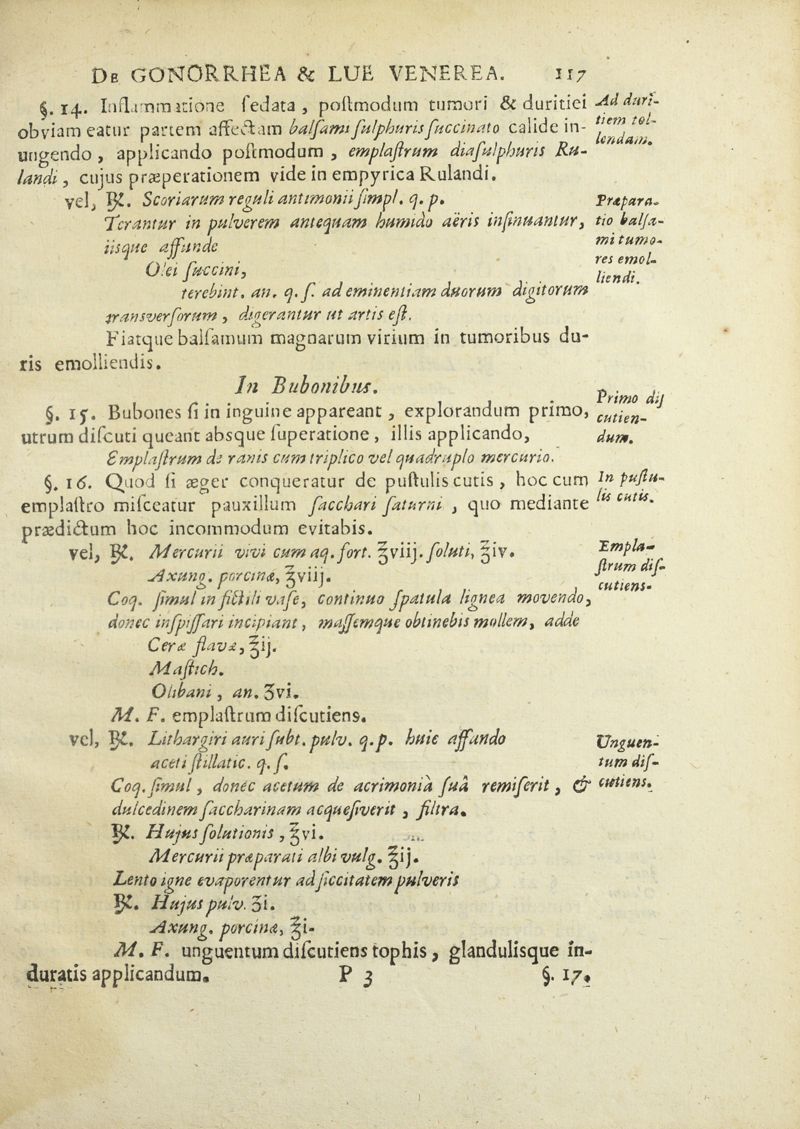 De GONORRHEA & LUE VENEREA. 117
§. 14. Inflammatione ſedata, poſtmodum tumori & duritiei
obviam eatur partem affectam balſami ſulphuris ſuccinato calide in-
ungendo, applicando poſtmodum, emplaſtrum diaſulphuris Ru-
landi, cujus præperationem vide in empyrica Rulandi.
Ad duri-
tiem tol-
lendam.
vel, ℞. Scoriarum reguli antimonii ſimpl. q. p.
Terantur in pulverem antequam humido aëris inſinuantur,
iisque affunde
Olei ſuccini,
terebint. an. q. ſ. ad eminentiam duorum digitorum
transverſorum, digerantur ut artis eſt.
Præpara-
tio balſa-
mi tumo-
res emol-
liendi.
Fiatque balſamum magnarum virium in tumoribus du-
ris emolliendis.
In Bubonibus.
§. 15. Bubones ſi in inguine appareant, explorandum primo,
utrum diſcuti queant absque ſuperatione, illis applicando,
Emplaſtrum de ranis cum triplico vel quadruplo mercurio.
Primo diſ
cutien-
dum.
§. 16. Quod ſi æger conqueratur de puſtulis cutis, hoc cum
emplaſtro miſceatur pauxillum ſacchari ſaturni, quo mediante
prædictum hoc incommodum evitabis.
In puſtu-
lis cutis.
vel, ℞. Mercurii vivi cum aq. fort. ℥viij. ſoluti, ℥iv.
Axung. porcinæ, ℥viij.
Coq. ſimul in fictili vaſe, continuo ſpatula lignea movendo,
donec inſpiſſari incipiant, maſſamque obtinebis mollem, adde
Ceræ flavæ, ℥ij.
Maſtich.
Olibani, an. ʒvi.
M. F. emplaſtrum diſcutiens.
Empla-
ſtrum diſ-
cutiens.
vel, ℞. Lithargiri auri ſubt. pulv. q.p. huic affundo
aceti ſtillatic. q. ſ.
Coq. ſimul, donec acetum de acrimoniâ ſuâ remiſerit, &
dulcedinem ſaccharinam acqueſiverit, filtra.
Unguen-
tum diſ-
cutiens.
℞. Hujus ſolutionis, ℥vi.
Mercurii præparati albi vulg. ℥ij.
Lento igne evaporentur ad ſiccitatem pulveris
℞. Hujus pulv. ʒi.
Axung. porcinæ, ℥i-
M. F. unguentum diſcutiens tophis, glandulisque in-
duratis applicandum.
P 3 §. 17.